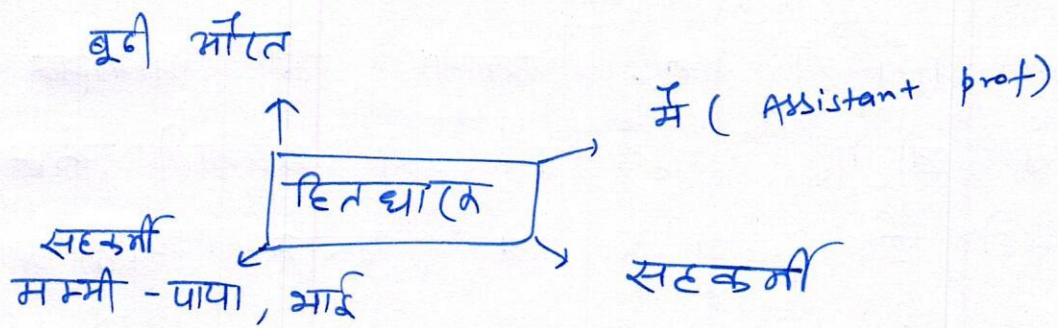 बूढ़ी औरत
मैं ( Assistant prof)
हितधारक
सहकर्मी
मम्मी - पापा, भाई
सहकर्मी